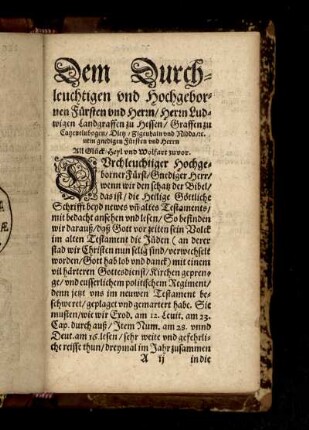 Dem Durch-
leuchtigen vnd Hochgebor-
nen Fürsten vnd Herrn/ Herrn Lud-
wigen Landgraffen zu Hessen/ Graffen zu
Catzenelnbogen/ Dietz/ Ziegenhain vnd Nidda/ ꝛc.
mein gnedigen Fürsten vnd Herrn
All Glück/ Heyl vnd Wolfart zuvor.
DVrchleuchtiger Hochge-
borner Fürst/ Gnediger Herr/
wenn wir den schatz der Bibel/
das ist/ die Heilige Göttliche
Schrifft beyd newes vñ altes Testaments/
mit bedacht ansehen vnd lesen/ So befinden
wir darauß/ daß Gott vor zeiten sein Volck
im alten Testament die Jüden ( an derer
stad wir Christen nun selig sind/ verwechselt
worden/ Gott hab lob vnd danck) mit einem
vil härteren Gottesdienst/ Kirchen gepren-
ge/ vnd eusserlichem politischem Regiment/
denn jetzt vns im neuwen Testament be-
schweret/ geplaget vnd gemartert habe. Sie
musten/ wie wir Exod. am 12. Leuit. am 23.
Cap. durch auß/ Item Num. am 28. vnnd
Deut. am 16. lesen/ sehr weite vnd gefehrli-
che reisse thun/ dreymal im Jahr zusammen
A ij in die